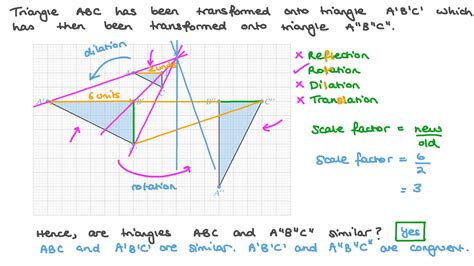 Triangle ABC has been transformed onto triangle A'B'C' which
has then been transformed onto triangle A"B"C".
dilation
2 units
6 units
A'
B'
B"
C"
A"
rotation
× Reflection
✓ Rotation
× Dilation
× Translation
Scale factor = new
old
Scale factor = 6
2
= 3
Hence, are triangles ABC and A"B"C" similar? Yes
ABC and A'B'C' are similar. A'B'C' and A"B"C" are congruent.